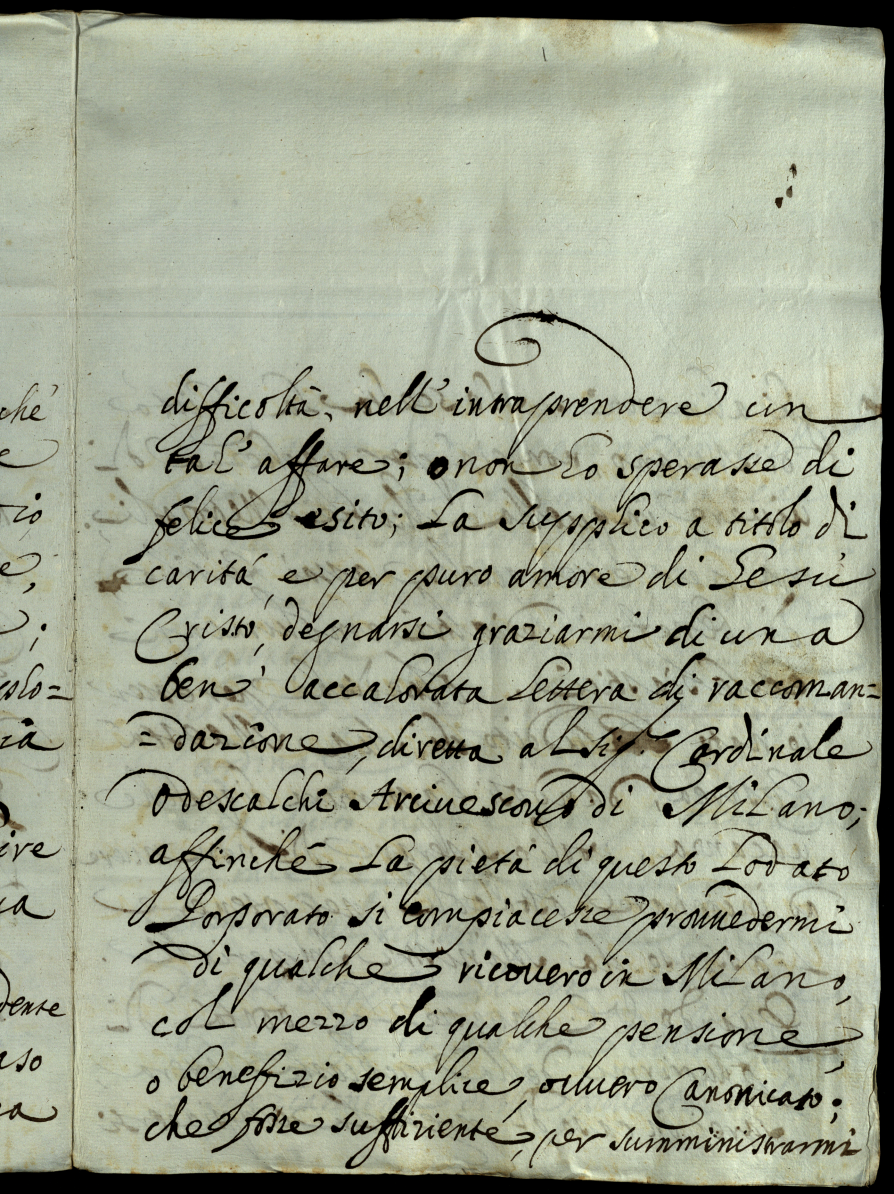 difficoltà, nell'intraprendere un
tal'affare; o non lo sperasse di
felice esito; La supplico a titolo di
carità, e per puro amore di Gesù
Cristo, degnarsi graziarmi di una
ben' accalorata Lettera di raccoman=
=dazione, diretta al Sig. Cardinale
Odescalchi Arciuescouo di Milano;
affinché La pietà di questo Lodato
Porporato si compiacesse prouuedermi
di qualche ricouero in Milano,
col mezzo di qualche pensione,
o benefizio semplice, ouuero Canonicato;
che fosse suffiziente, per sumministrarmi
ché
e
io
e,
;
ire
a
dente
aso